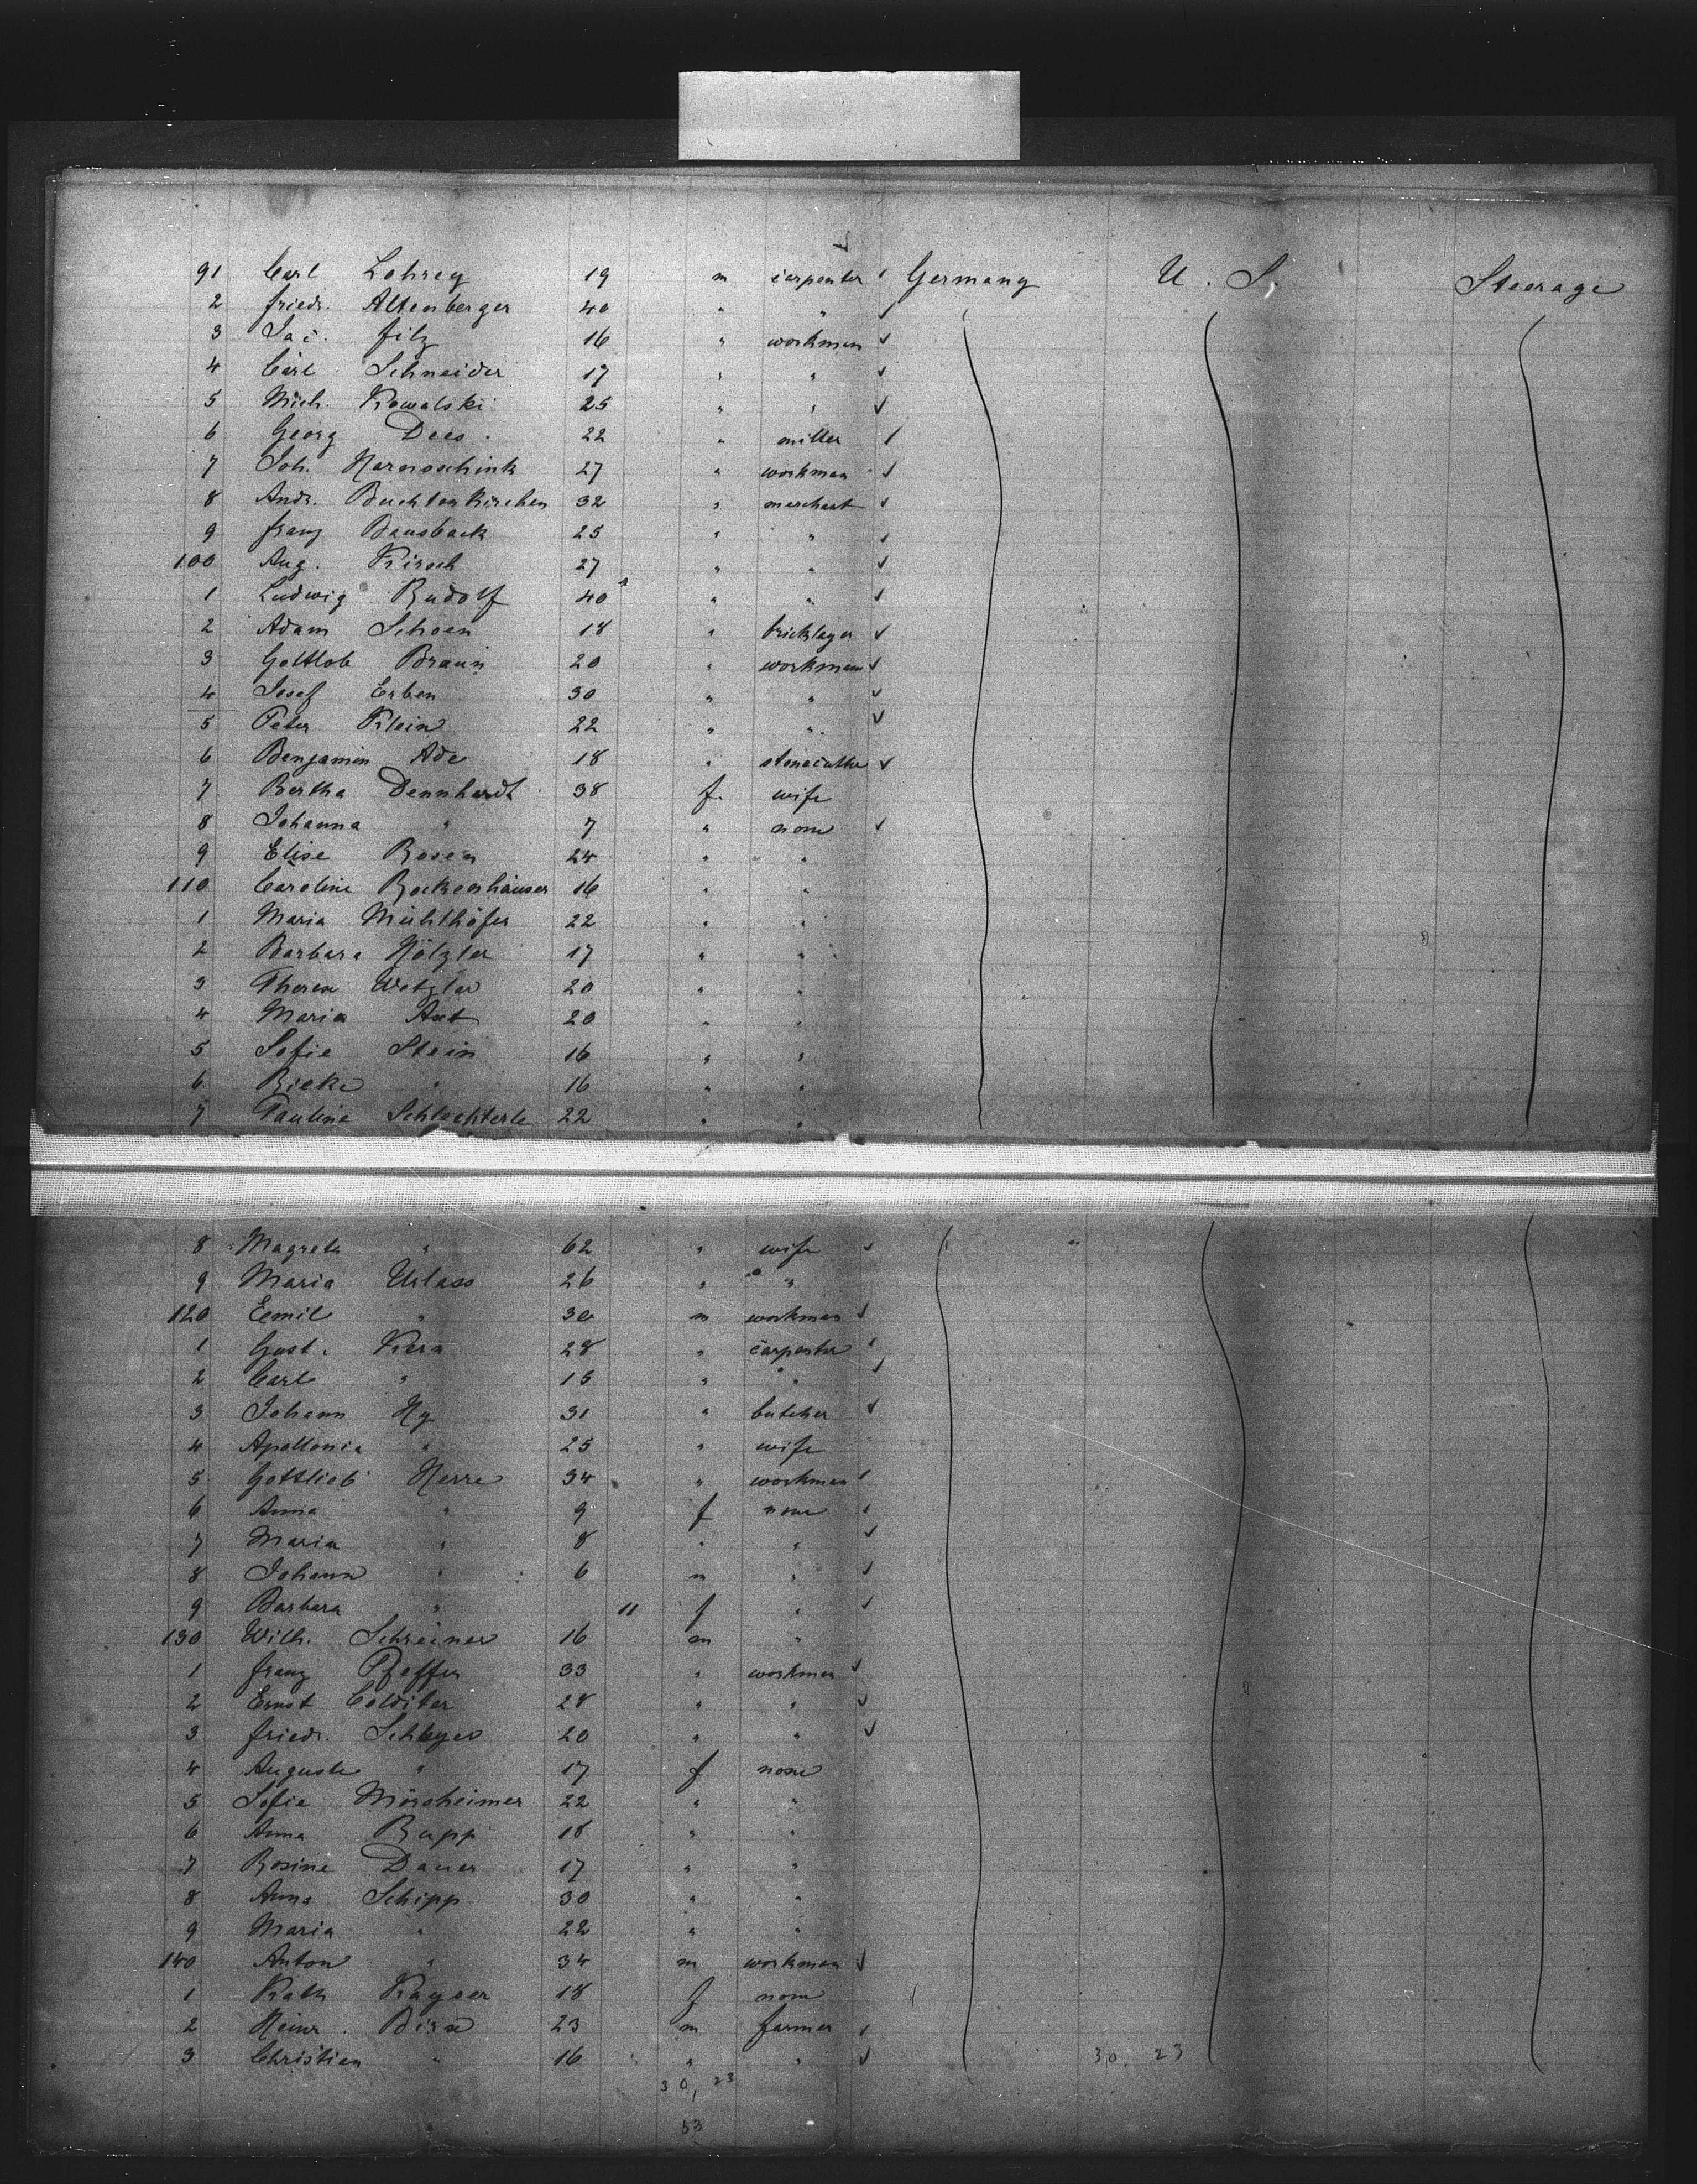 91 Carl Lohrey 19 m carpenter Germany U. S. Steerage
2 Friedr. Altenberger 40 " "
3 Jac. Filz 16 " workman
4 Carl Schneider 17 " "
5 Mich. Kowalski 25 " "
6 Georg Dees 22 " miller
7 Joh. 27 " workman
8 Andr. Buchtenkirchen 32 " merchant
9 Franz Bausback 25 " "
100 Aug. Kirsch 27 " "
1 Ludwig Rudolf 40 " "
2 Adam Schoen 18 " bricklayer
3 Gottlob Braun 20 " workman
4 Josef Erben 30 " "
5 Peter Klein 22 " "
6 Benjamin Ade 18 " stonecutter
7 Bertha Dennhardt 38 f. wife
8 Johanna " 7 " none
9 Elise Rosen 24 " "
110 Caroline Rockenhäuser 16 " "
1 Maria Mühlhöfer 22 " "
2 Barbara Hölzler 17 " "
3 Therese Wetzler 20 " "
4 Maria Axt 20 " "
5 Sofie Stein 16 " "
6 Rieke " 16 " "
7 Pauline Schlechterle 22 " "
8 Magreta " 62 " wife
9 Maria Urlass 26 " "
120 Eemil " 30 m workman
1 Gust. Kern 28 " carpenter
2 Carl " 15 " "
3 Johann Hy 31 " butcher
4 Apollonia " 25 " wife
5 Gottlieb Herre 34 " workman
6 Anna " 9 f none
7 Maria " 8 " "
8 Johann " 6 m "
9 Barbara " 11 f "
130 Wilh. Schreiner 16 m "
1 Franz Pfeffer 33 " workman
2 Ernst Colditer 28 " "
3 Friedr. Schleyer 20 " "
4 Auguste " 17 f none
5 Sofie Mörsheimer 22 " "
6 Anna Rupp 18 " "
7 Rosine Dauer 17 " "
8 Anna Schipp 30 " "
9 Maria " 22 " "
140 Anton " 34 m workman
1 Kath Kayser 18 f none
2 Heinr. 23 m farmer
3 Christian " 16 " " 30, 23
30, 23
53